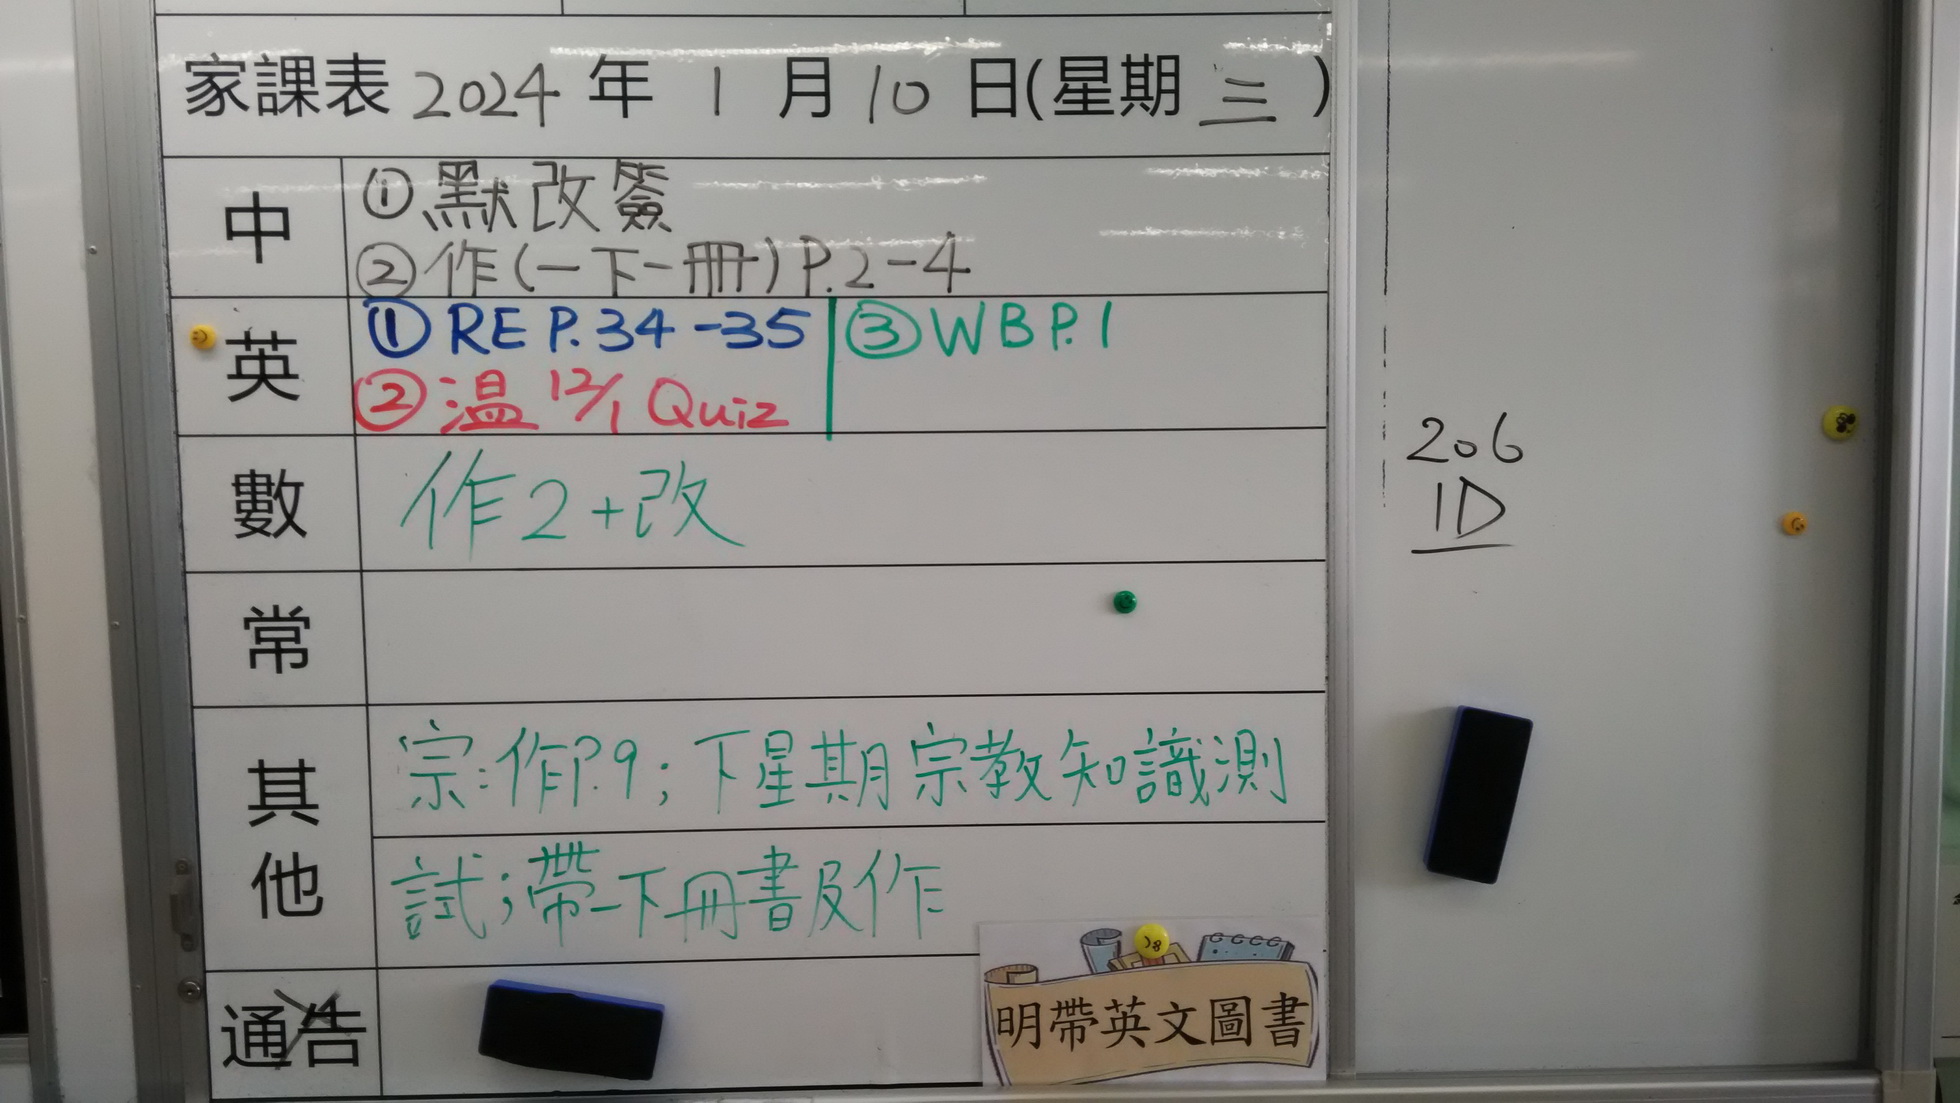 家課表 2024 年 1 月 10 日(星期 三 )
中
①默改簽
②作(一下一冊)P.2-4
英
①RE P.34-35
②温 12/1 Quiz
③WB P.1
數
作2+改
常
其他
宗:作P.9;下星期宗教知識測
試;帶一下冊書及作
通告
明帶英文圖書
206
1D